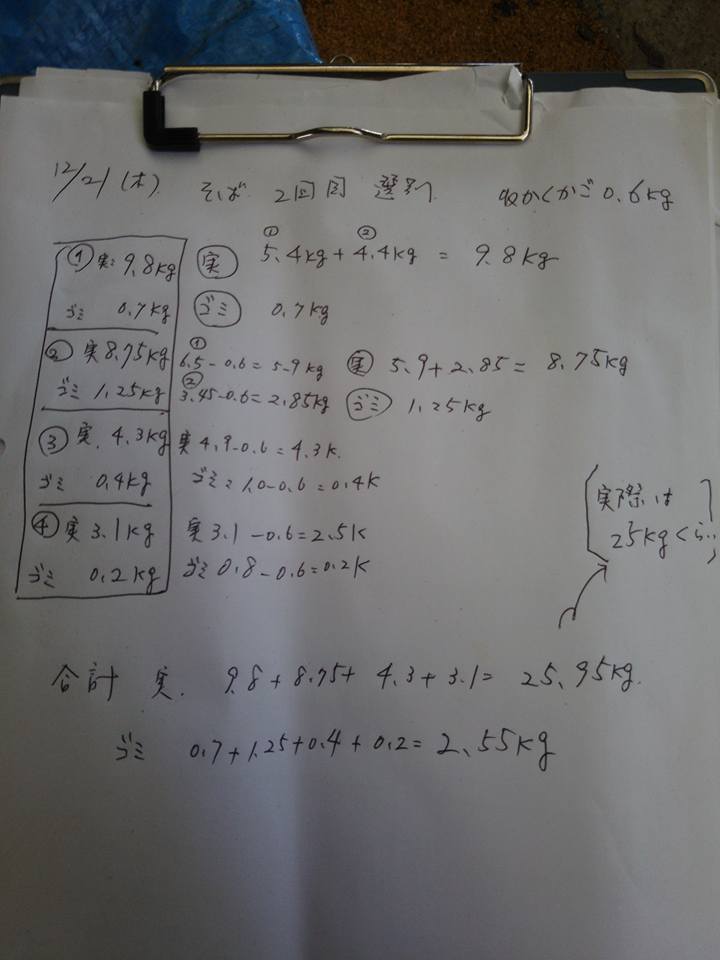 12/21(木) そば 2回目 選別 収かくかご0.6kg
① 実: 9.8kg 実 ①5.4kg+②4.4kg = 9.8kg
ゴミ 0.7kg ゴミ 0.7kg
② 実8.75kg ①6.5-0.6=5.9kg 実 5.9+2.85= 8.75kg
ゴミ 1.25kg ②3.45-0.6=2.85kg ゴミ 1.25kg
③ 実. 4.3kg 実4.9-0.6=4.3K.
ゴミ 0.4kg ゴミ: 1.0-0.6=0.4K
④ 実 3.1kg 実3.1-0.6=2.5K
ゴミ 0.2kg ゴミ 0.8-0.6=0.2K
実際は
25kgくらい
合計 実. 9.8+8.75+ 4.3+3.1= 25.95kg.
ゴミ 0.7+1.25+0.4+0.2= 2.55kg